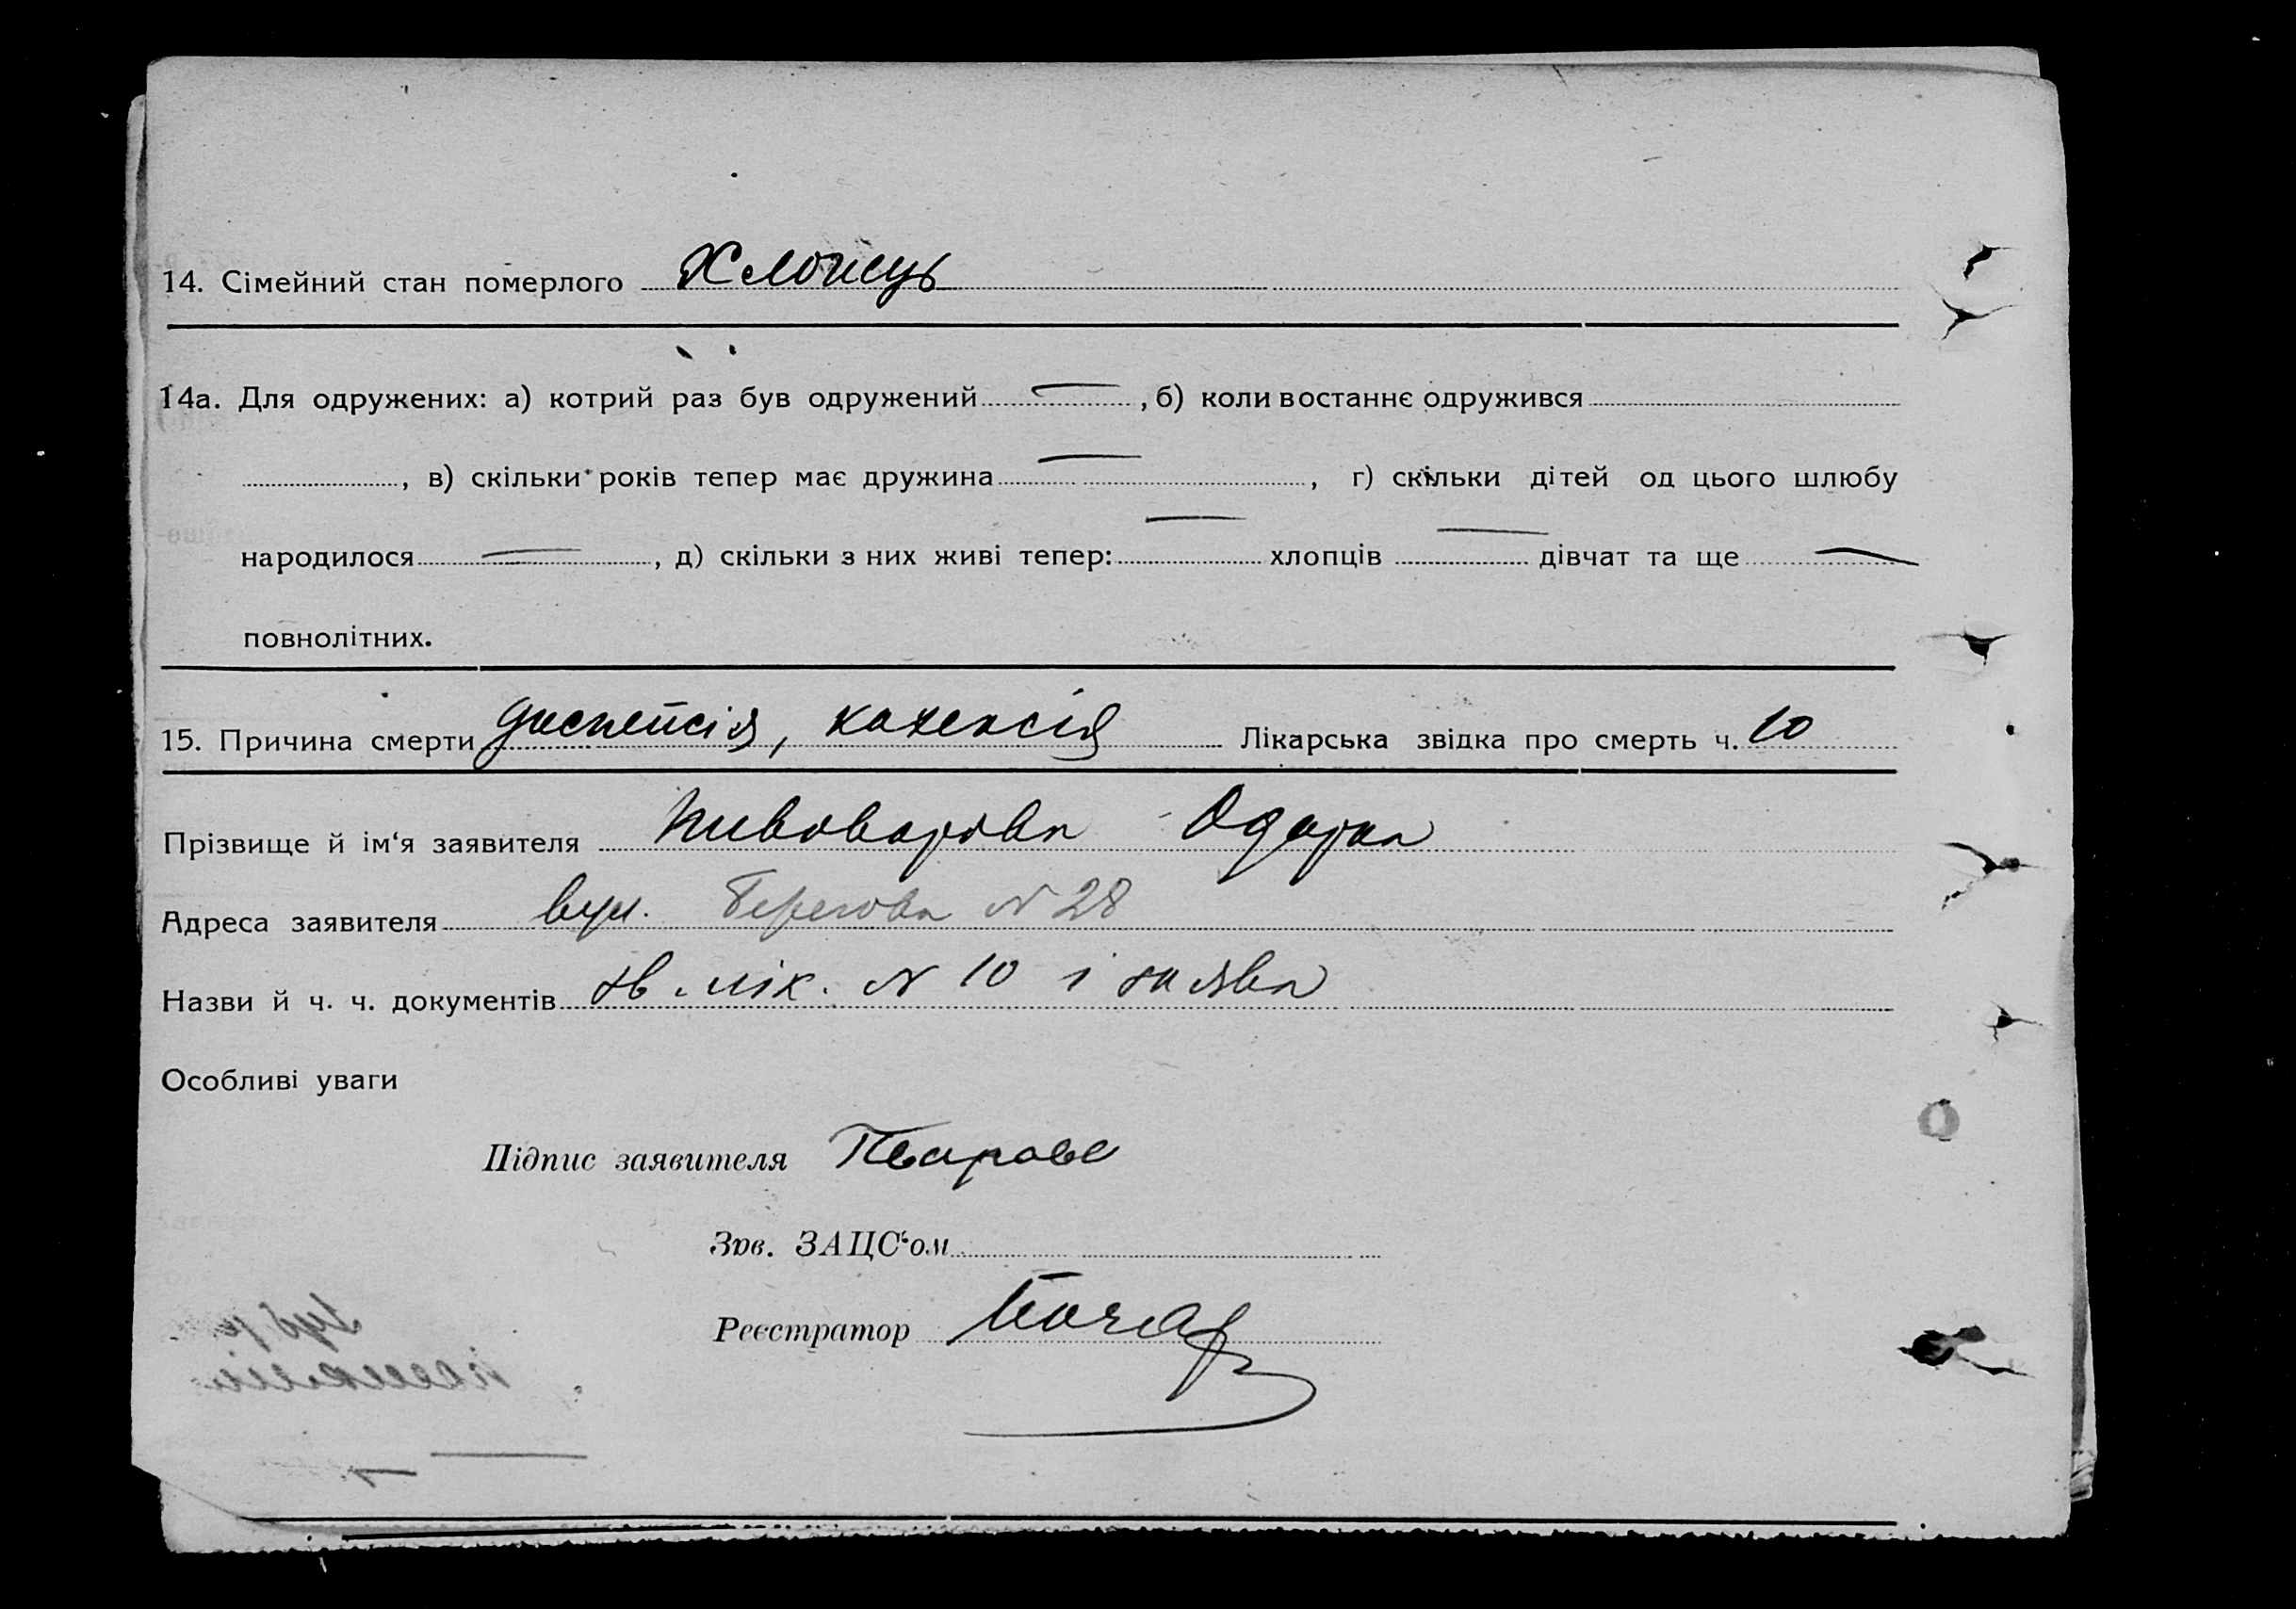 14. Сімейний стан померлого Хлопець
14а. Для одружених: а) котрий раз був одружений — , б) коли востаннє одружився
, в) скільки років тепер має дружина — , г) скільки дітей од цього шлюбу
народилося — , д) скільки з них живі тепер: — хлопців — дівчат та ще —
повнолітних.
15. Причина смерти диспепсія, кахексія Лікарська звідка про смерть ч. 10
Прізвище й ім‘я заявителя Пивоварова Одарка
Адреса заявителя вул. Берегова N 28
Назви й ч. ч. документів зв. лік. N 10 і заява
Особливі уваги
Підпис заявителя
Зав. ЗАЦС‘ом
Реєстратор